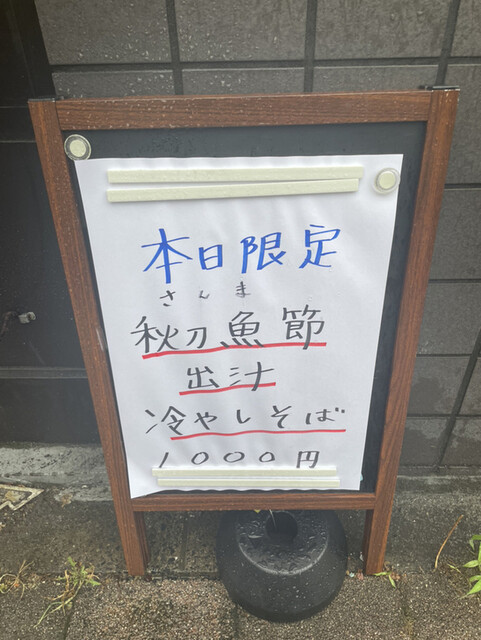 本日限定
さんま
秋刀魚節
出汁
冷やしそば
1000円